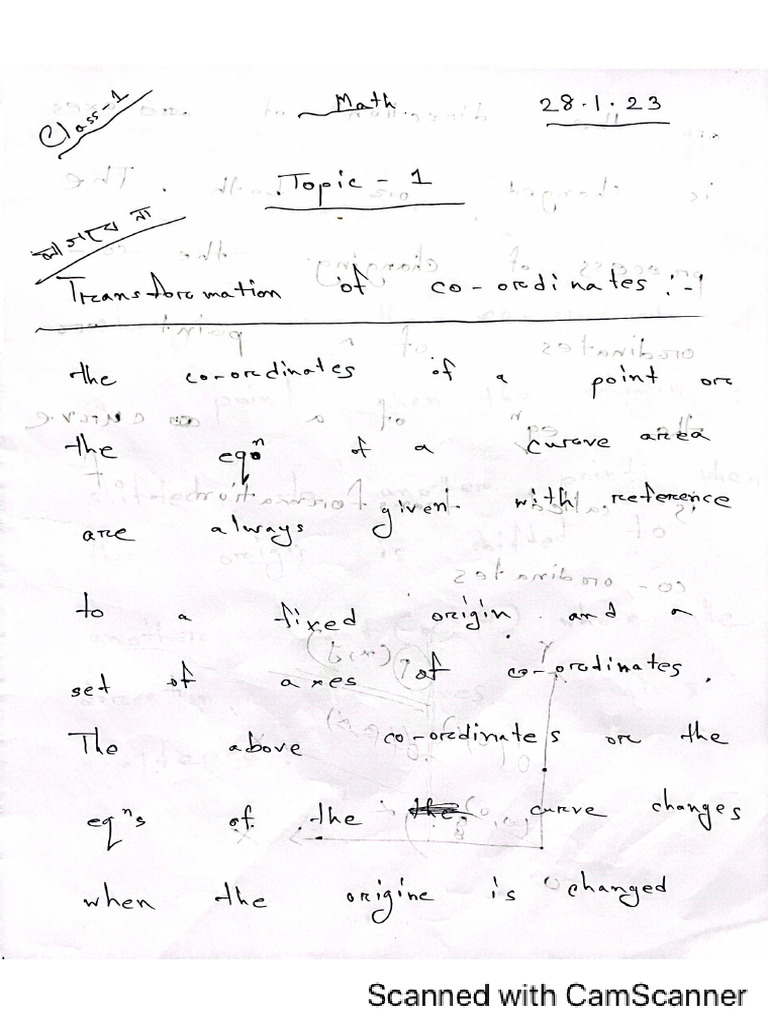 Class-1
Math
28.1.23
Topic - 1
আসবে না
Transformation of co-ordinates :-
the co-ordinates of a point or
the eqⁿ of a curve area
are always given with reference
to a fixed origin and a
set of axes of co-ordinates.
The above co-ordinates or the
eqⁿs of the curve changes
when the origine is changed
Scanned with CamScanner